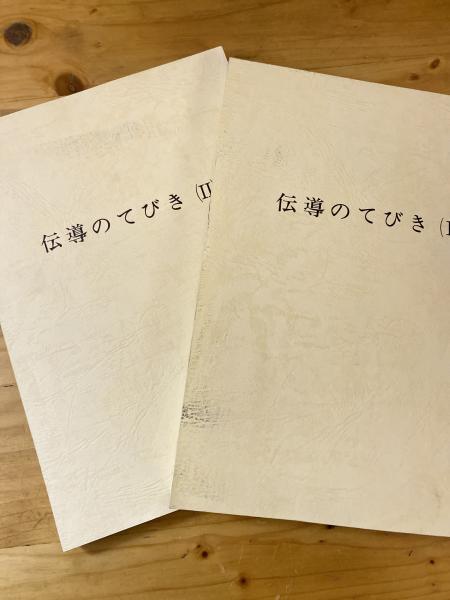 伝導のてびき (II)
伝導のてびき (I